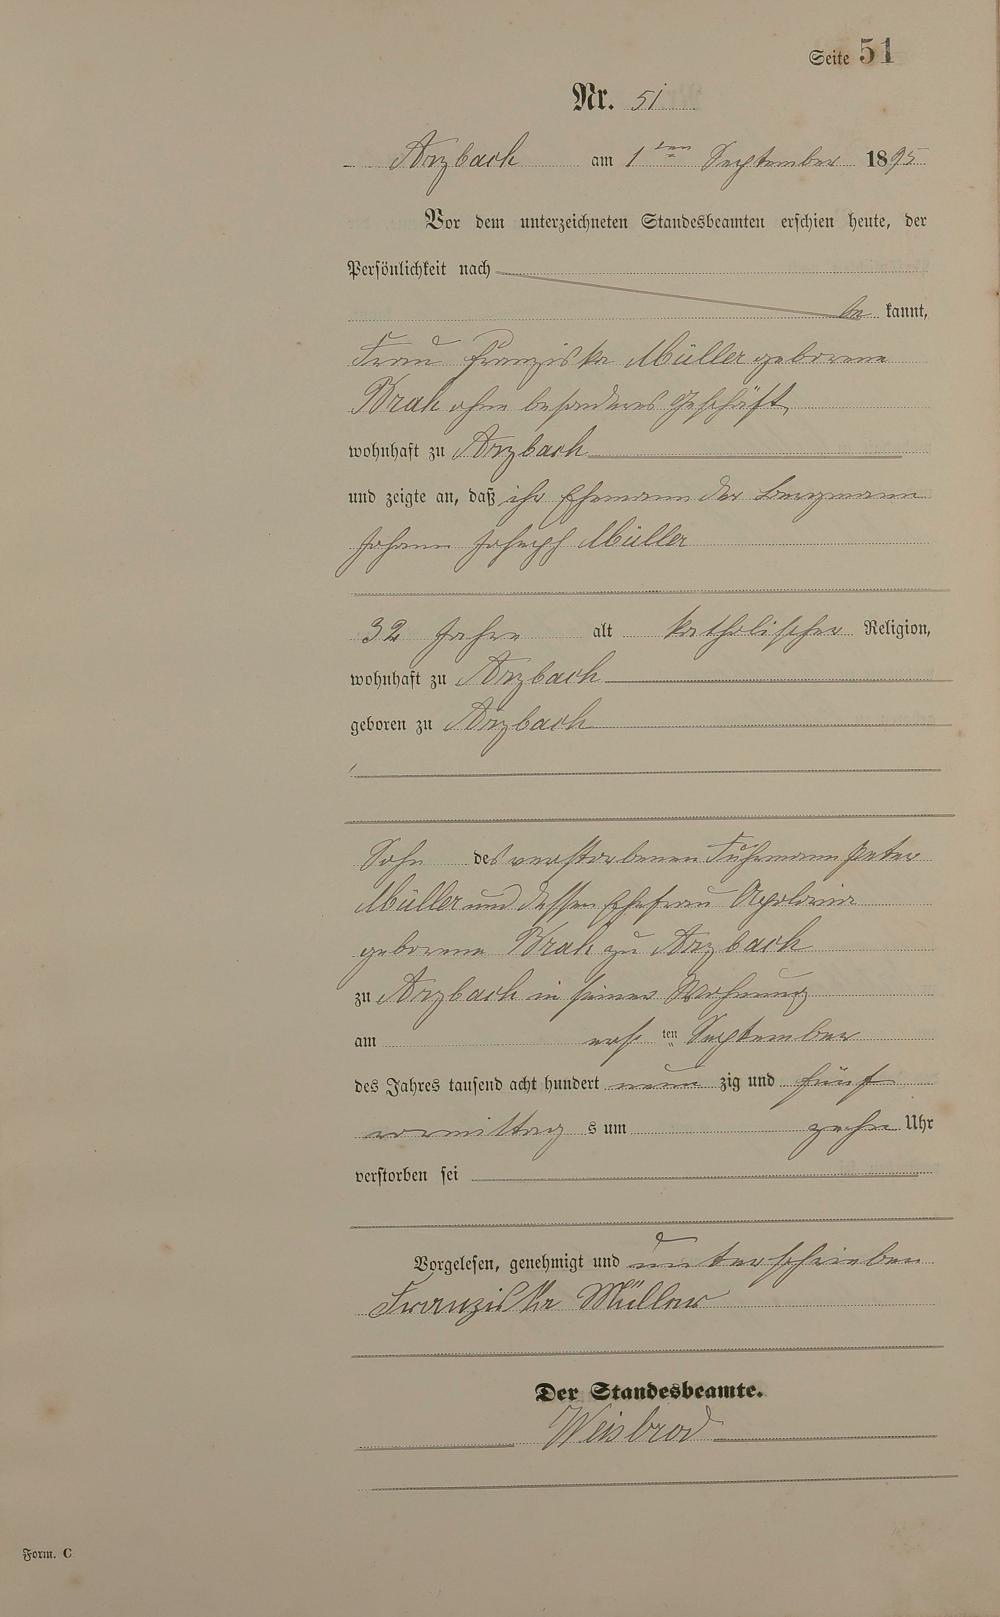 Seite 51
Nr. 51
Arzbach am 1ten September 1895
Vor dem unterzeichneten Standesbeamten erschien heute, der
Persönlichkeit nach
be kannt,
Frau Franziska Müller geborene
Brah ohne besonderes Geschäft
wohnhaft zu Arzbach
und zeigte an, daß ihr Ehemann der Bergmann
Johann Joseph Müller
32 Jahre alt katholischer Religion,
wohnhaft zu Arzbach
geboren zu Arzbach
Sohn des verstorbenen Fuhrmann Peter
Müller und dessen Ehefrau Apolonia
geborene Brah zu Arzbach
zu Arzbach in seiner Wohnung
am ersten September
des Jahres tausend acht hundert neunzig und fünf
vormittags um zehn Uhr
verstorben sei
Vorgelesen, genehmigt und unterschrieben
Franziska Müller
Der Standesbeamte.
Weisbrod
Form. C